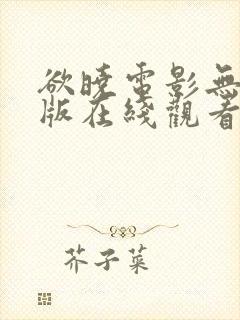 欲曉電影無
版在綫觀看
芥子菜